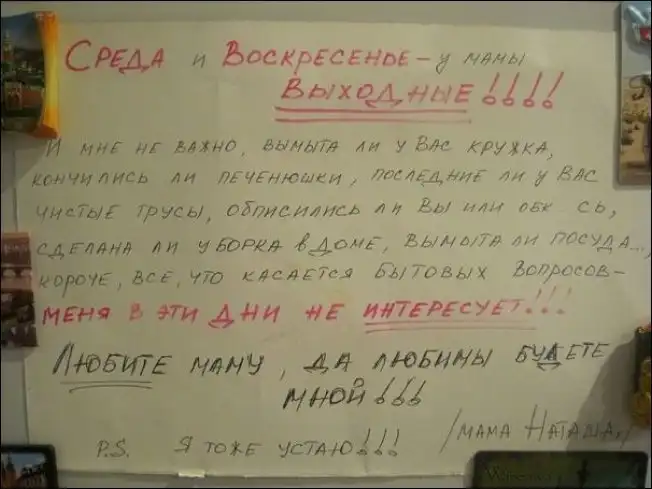 Среда и Воскресенье – у мамы
Выходные!!!!
И мне не важно, вымыта ли у Вас кружка,
кончились ли печенюшки, последние ли у Вас
чистые трусы, обписились ли Вы или обк сь,
сделана ли уборка в доме, вымыта ли посуда...,
короче, все, что касается бытовых вопросов–
меня в эти дни не интересует!!!
Любите маму, да любимы будете
мной!!!
/мама Наташа/
P.S. Я тоже устаю!!!